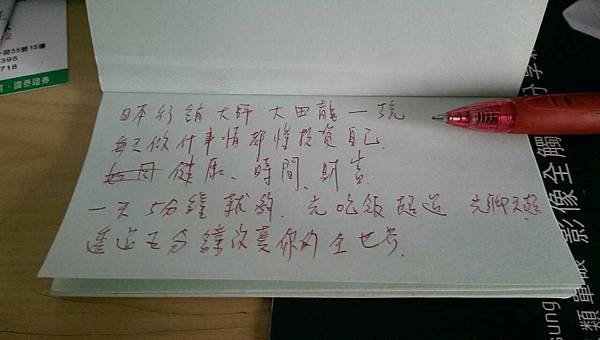 日本行銷大師 大田龍一說
每天做什事情都將投資自己.
健康、時間、財富
一天5分鐘就夠. 先吃飯 先聊天
這五分鐘改變你的全世界.
段35號15樓
395
718
sung
影像全觸
類單眼